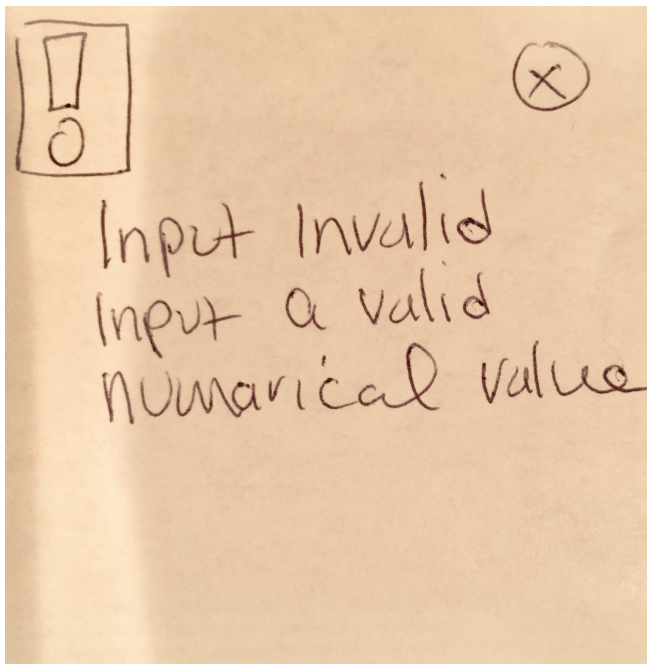 !
X
Input Invalid
Input a valid
numarical value